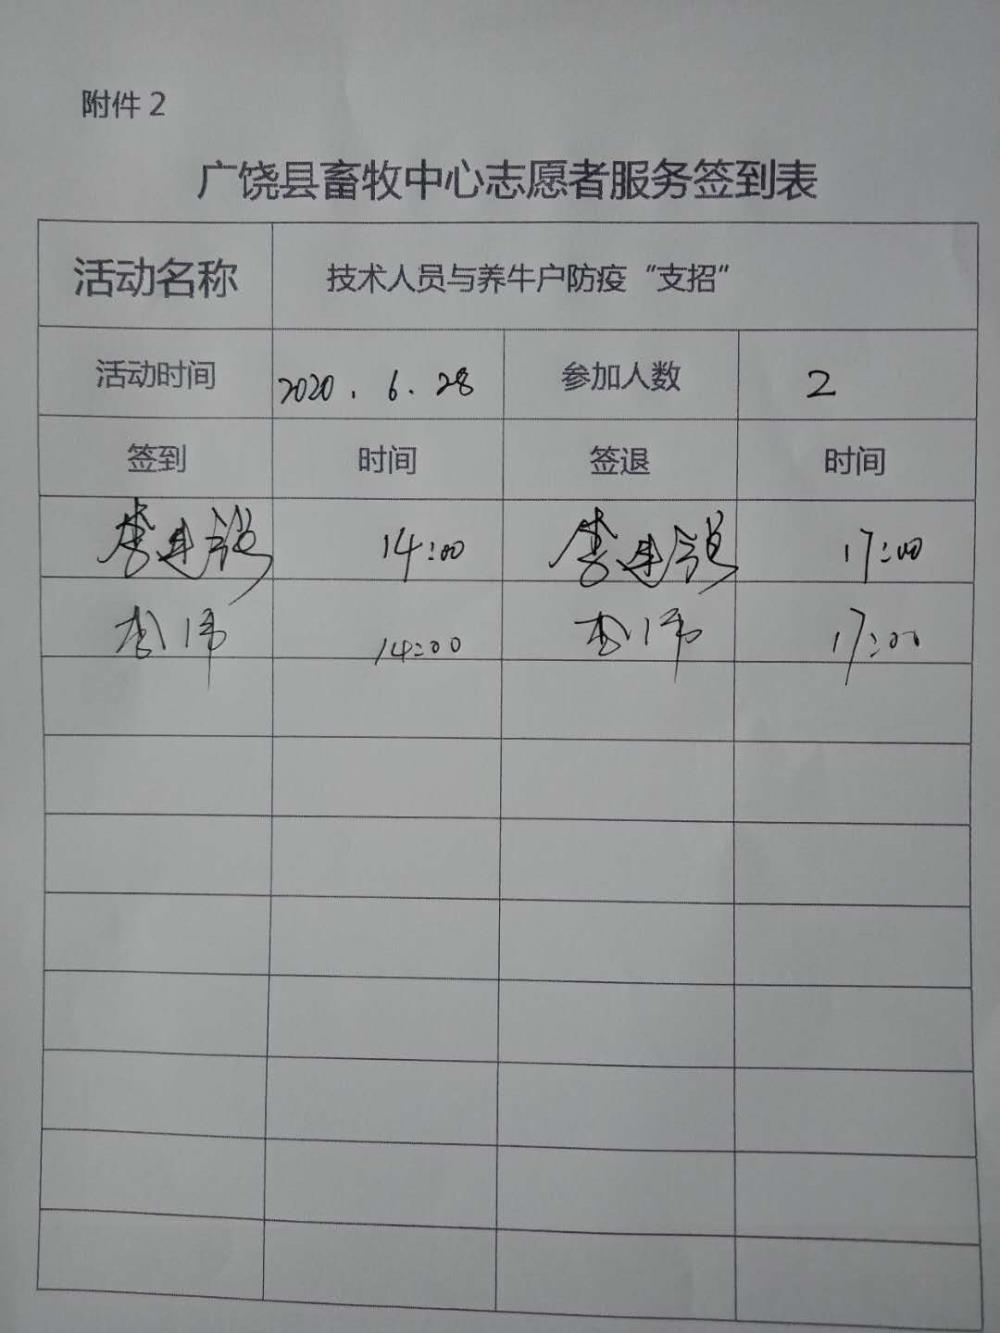 附件 2
广饶县畜牧中心志愿者服务签到表
活动名称 技术人员与养牛户防疫“支招”
活动时间 2020.6.28 参加人数 2
签到 时间 签退 时间
李建 14:00 李建 17:00
李伟 14:00 李伟 17:00